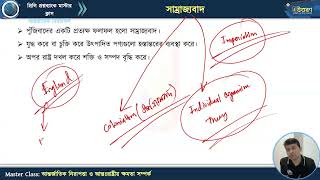 প্রিলি প্রশ্নব্যাংক মাস্টার
ক্লাস
সাম্রাজ্যবাদ
উত্তরণ
পুঁজিবাদের একটি প্রত্যক্ষ ফলাফল হলো সাম্রাজ্যবাদ।
যুদ্ধ করে বা চুক্তি করে উৎপাদিত পণ্যগুলো হস্তান্তরের ব্যবস্থা করে।
অপর রাষ্ট্র দখল করে শক্তি ও সম্পদ বৃদ্ধি করে।
Imperialism
England
Colonialism (উপনিবেশবাদ)
Individual organism
Master Class: আন্তর্জাতিক নিরাপত্তা ও আন্তঃরাষ্ট্রীয় ক্ষমতা সম্পর্ক